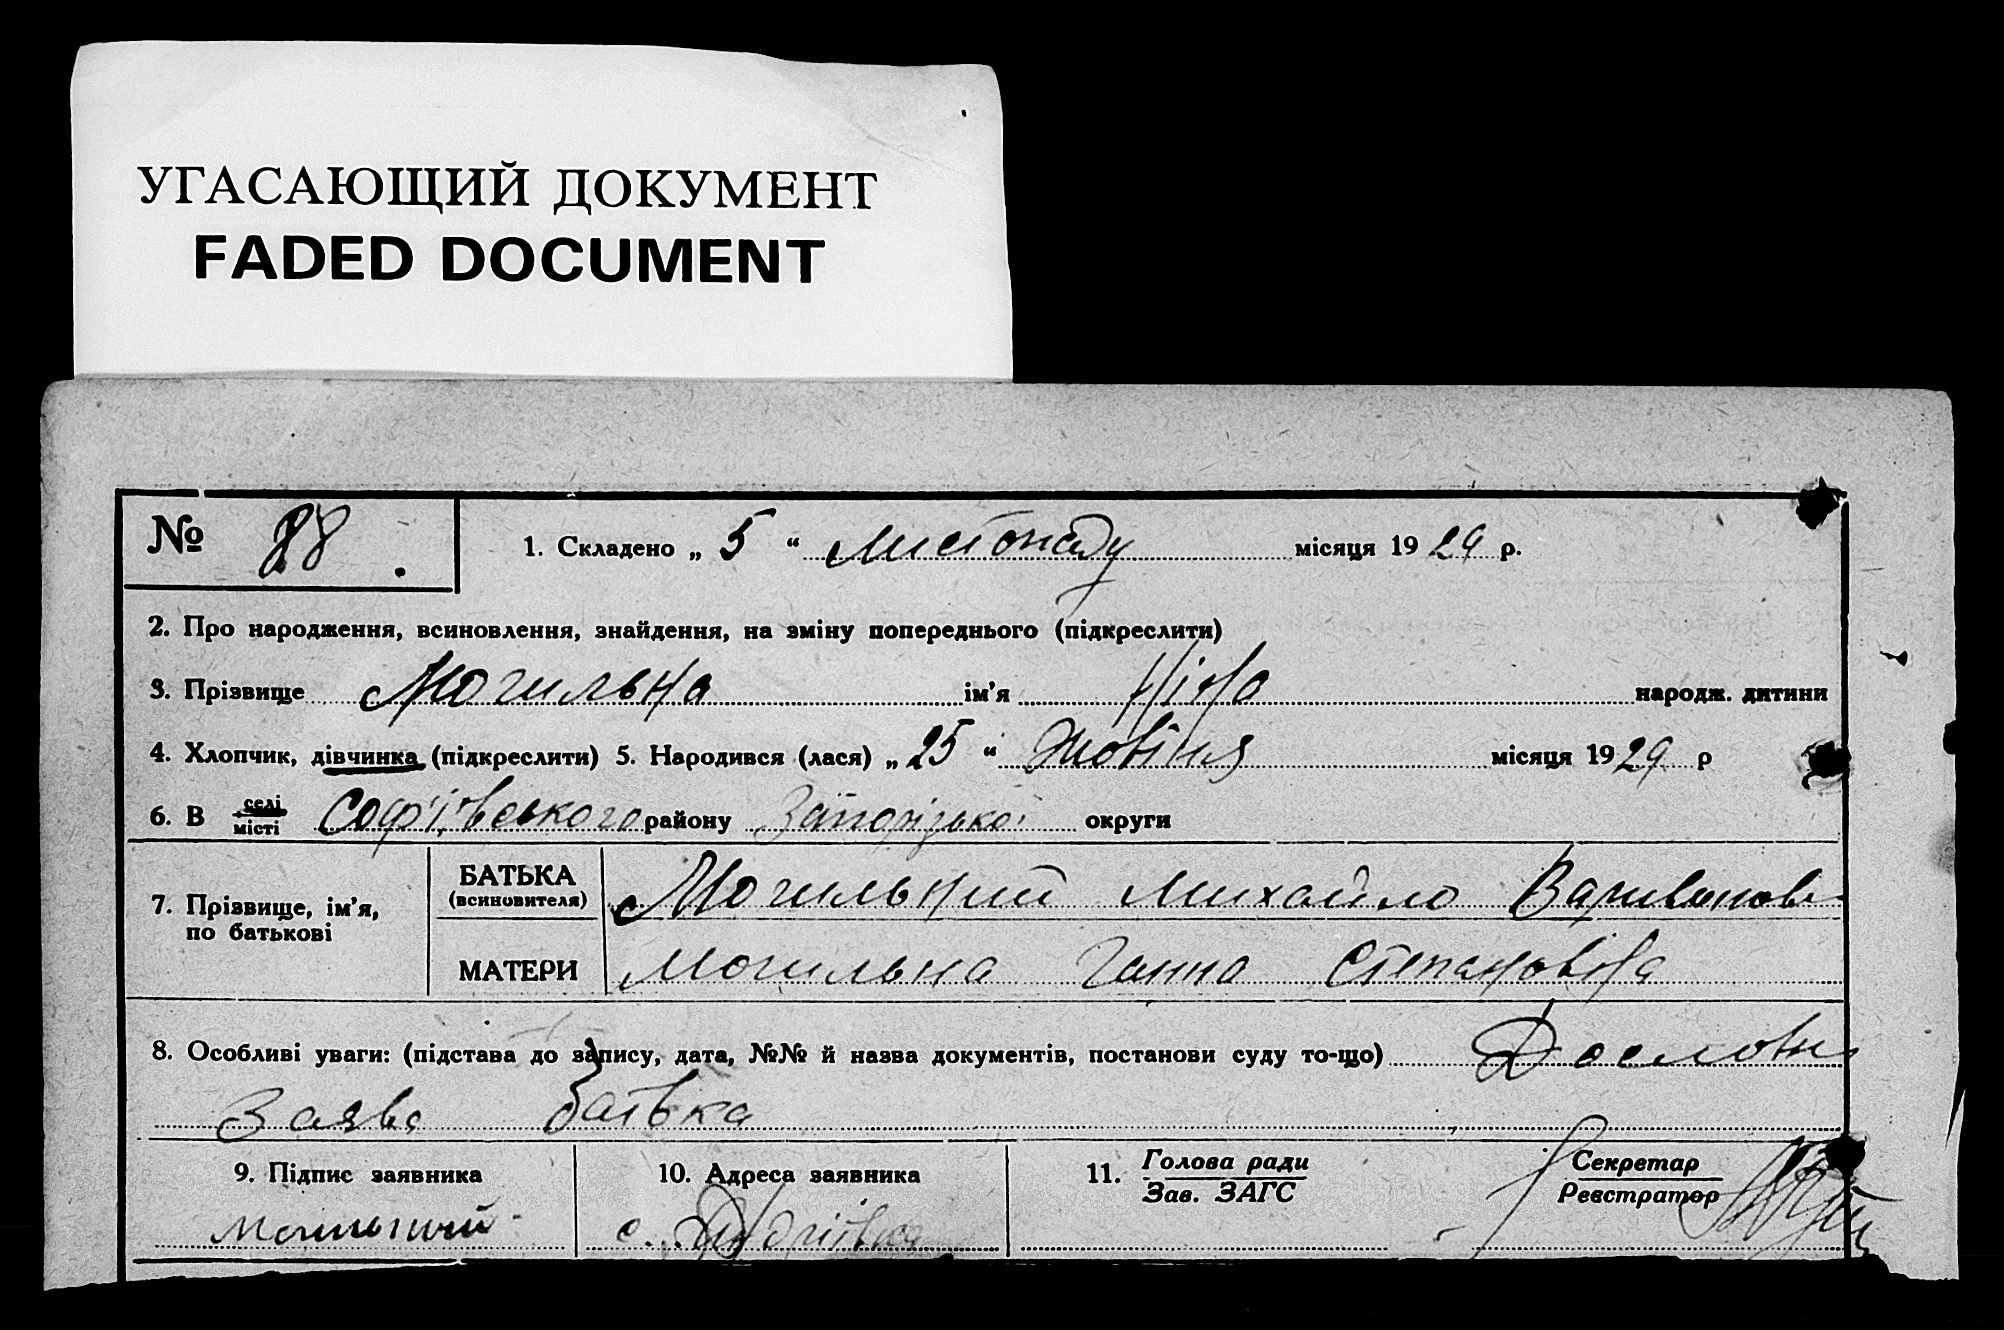 УГАСАЮЩИЙ ДОКУМЕНТ
FADED DOCUMENT
№ 88.
1. Складено „ 5 “ Листопаду місяця 1929 р.
2. Про народження, всиновлення, знайдення, на зміну попереднього (підкреслити)
3. Прізвище Могильна ім'я Ніна народж. дитини
4. Хлопчик, дівчинка (підкреслити) 5. Народився (лася) „ 25 “ Жовтня місяця 1929 р
6. В селі місті Софіївського району Запорізької округи
7. Прізвище, ім'я, по батькові
БАТЬКА (всиновителя) Могильний Михайло
МАТЕРИ Могильна Ганна Степановна
8. Особливі уваги: (підстава до запису, дата, №№ й назва документів, постанови суду то-що)
Заява батька
9. Підпис заявника 10. Адреса заявника 11. Голова ради Зав. ЗАГС Секретар Реєстратор
Могильний с. Андріївка